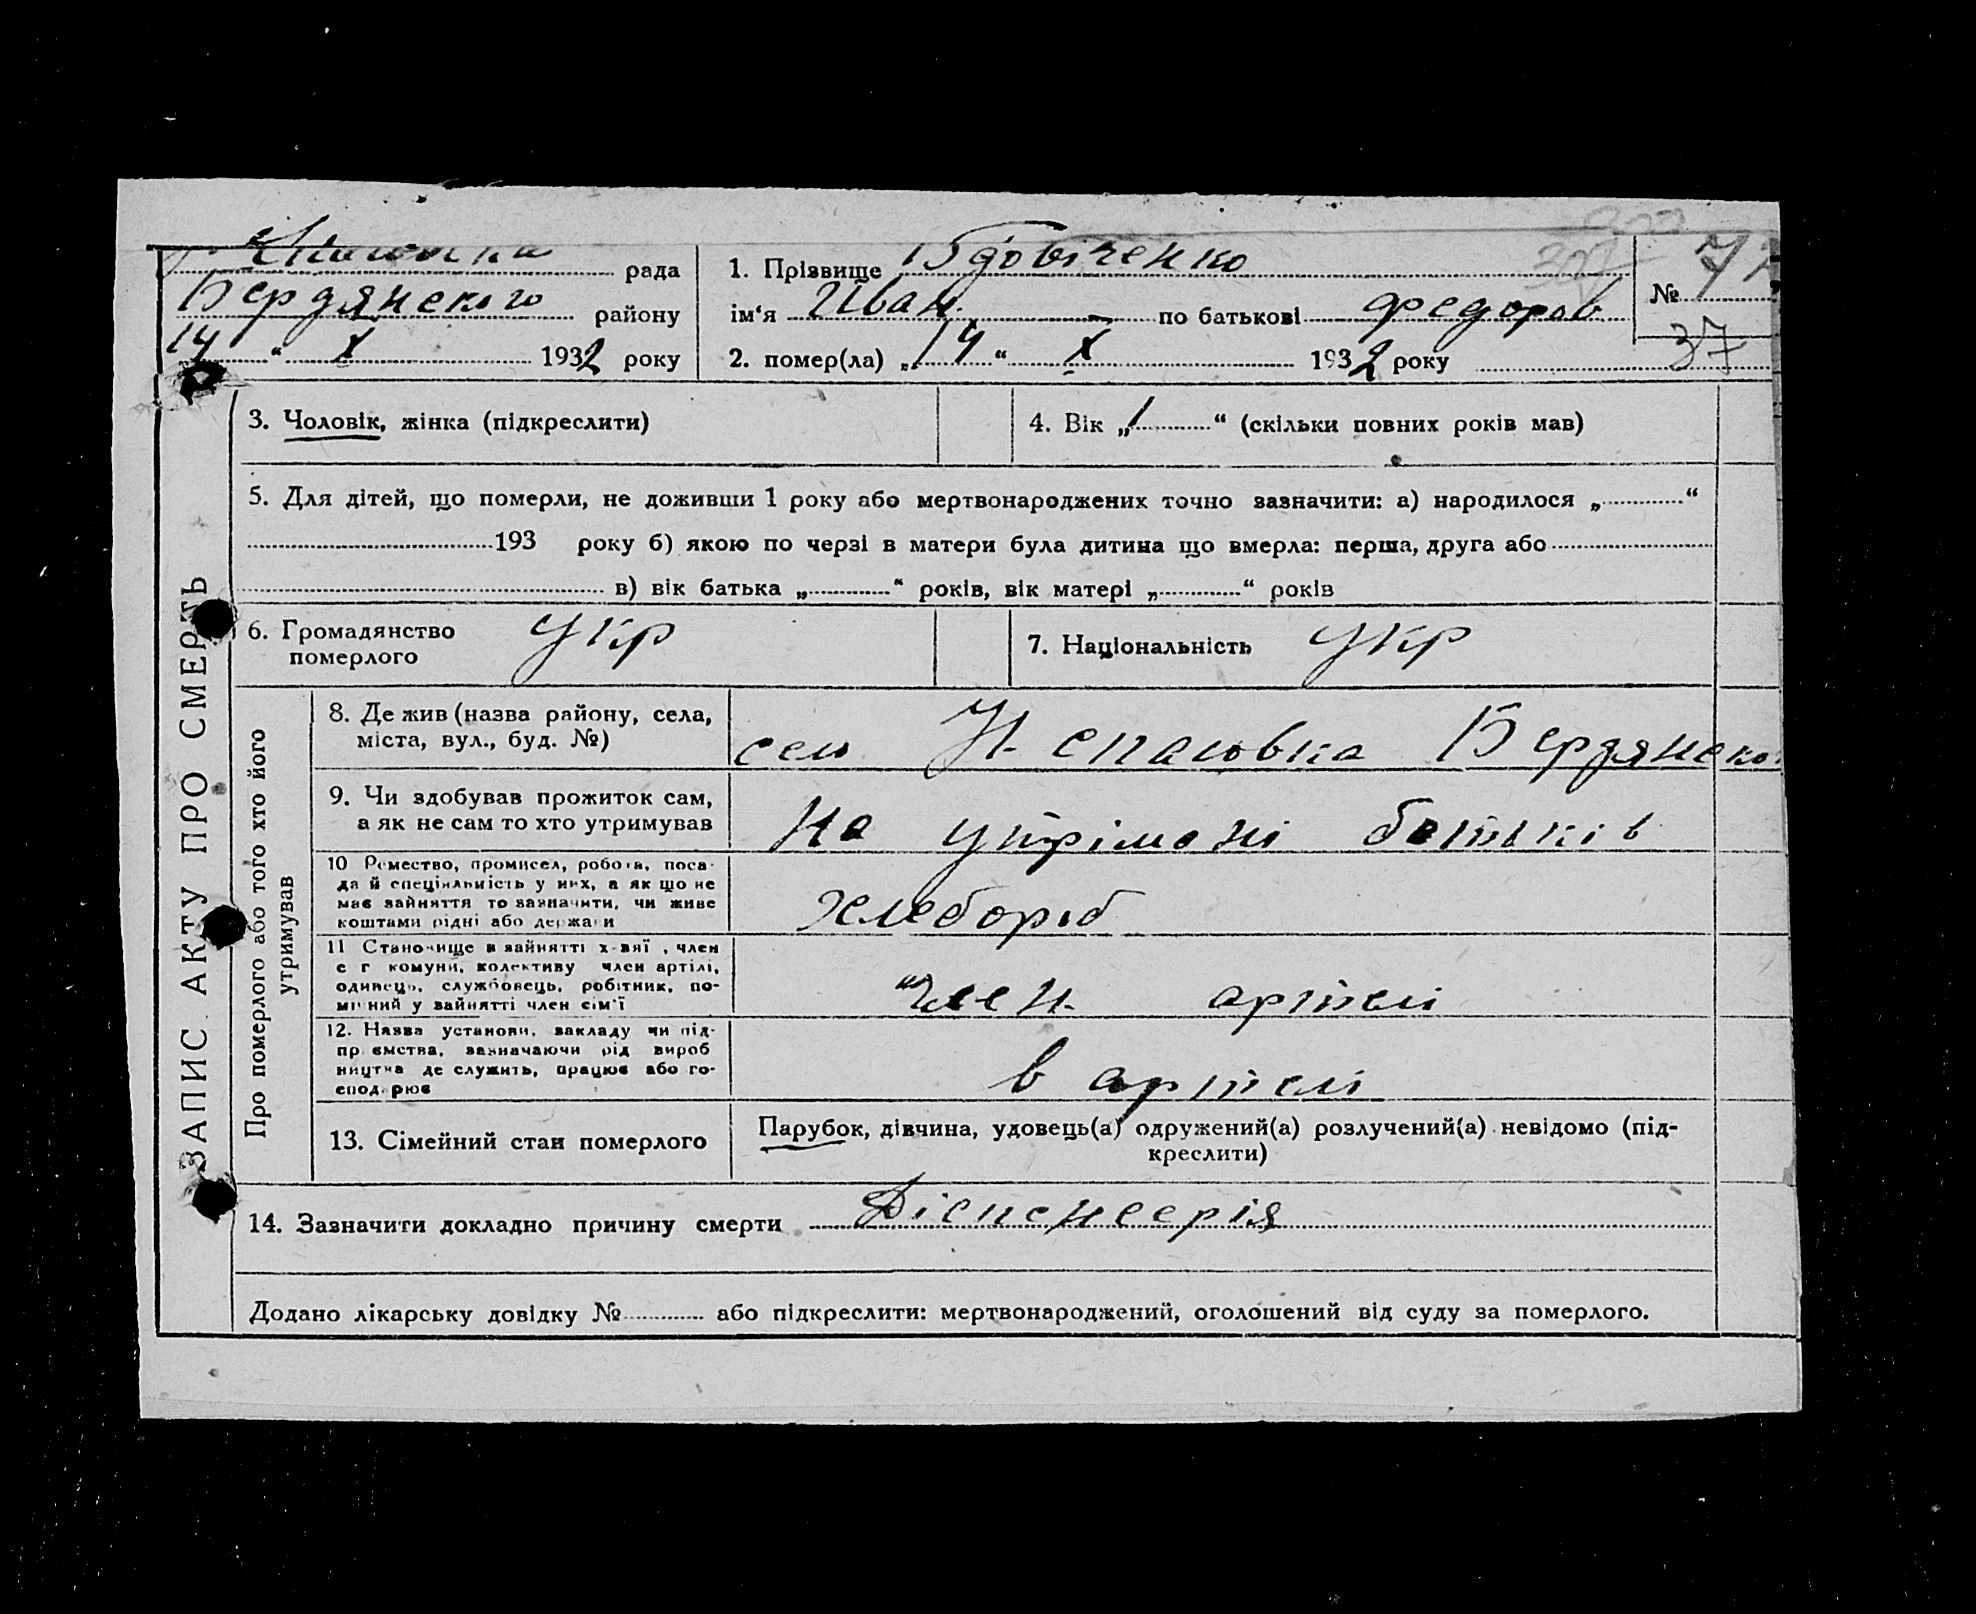 рада
Бердянского району
14 " X 1932 року
1. Прізвище Вдовіченко
ім'я Иван по батькові Федоров
2. помер(ла) „ 14 " X 1932 року
№ 77
37
ЗАПИС АКТУ ПРО СМЕРТЬ
3. Чоловік, жінка (підкреслити)
4. Вік „ 1 " (скільки повних років мав)
5. Для дітей, що померли, не доживши 1 року або мертвонароджених точно зазначити: а) народилося „ "
193 року б) якою по черзі в матери була дитина що вмерла: перша, друга або
в) вік батька „ " років, вік матері „ " років
6. Громадянство
померлого Укр
7. Національність Укр
Про померлого або того хто його
утримував
8. Де жив (назва району, села,
міста, вул., буд. №)
село Н-спасовка Бердянско
9. Чи здобував прожиток сам,
а як не сам то хто утримував
На утрімані батьків
10 Ремество, промисел, робота, поса-
да й спеціяльність у них, а як що не
має зайняття то зазначити, чи живе
коштами рідні або держави
хлебороб
11 Становище в зайнятті х-вяї , член
с г комуни, колективу член артілі,
одинець, службовець, робітник, по-
мічний у зайнятті член сім'ї
член артелі
12. Назва установи, закладу чи під-
приємства, зазначаючи рід вироб
ництва де служить, працює або го-
сподарює
в артелі
13. Сімейний стан померлого
Парубок, дівчина, удовець(а) одружений(а) розлучений(а) невідомо (під-
креслити)
14. Зазначити докладно причину смерти Діспенсерія
Додано лікарську довідку № або підкреслити: мертвонароджений, оголошений від суду за померлого.